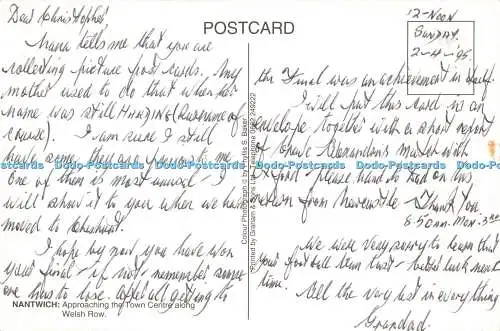 POSTCARD
Dear Christopher,
Nana tells me that you are
collecting picture post cards. My
mother used to do that when her
name was still HARDING (Surname of
course). I am sure I still
have some
one of them is most unusual I
will show it to you when we have
moved to
I hope by now you have won
your final - if not - remember some
one has to lose. After all getting to
NANTWICH: Approaching the Town Centre along
Welsh Row.
Colour Photographic by Phyllis S. Baker
Printed by Graham & Sons
12-NOON
SUNDAY
2-4-95
the Final was an achievement in itself.
I will put this card in an
envelope together with a short report
of Crewe Alexandra's match with
Oxford - please hand to Dad on his
return from Thank You
8-50am. Mon. 3rd
We were very sorry to learn that
your football team lost - better luck next
time. All the very best in everything
Grandad.
Www.Delcampe.Net